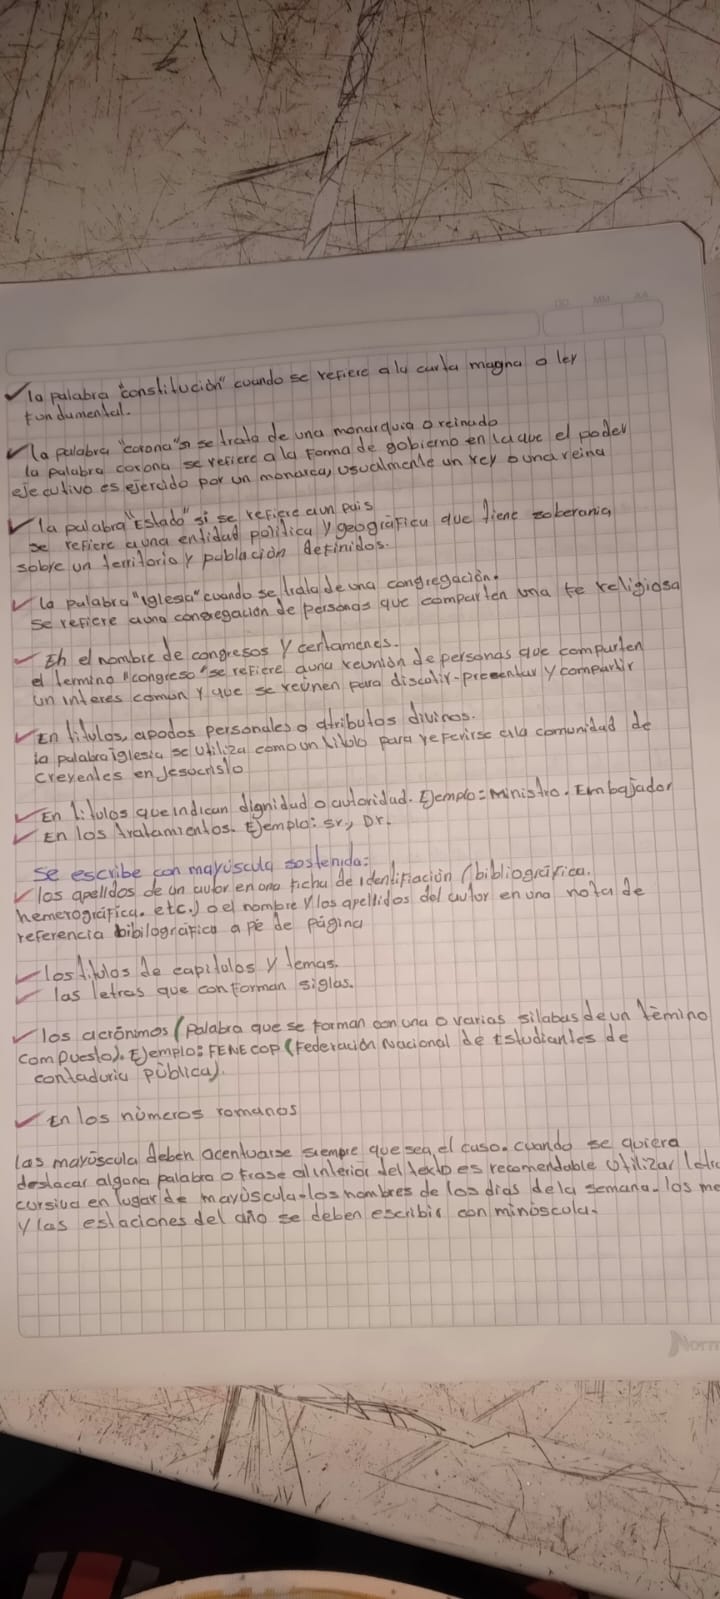 DD MM AA
✓la palabra "constitución" cuando se refiere a la carta magna o ley
fundamental.
✓la palabra "corona" si se trata de una monarquia o reinado
la palabra corona se refiere a la forma de gobierno en la que el poder
ejecutivo es ejercido por un monarca, usualmente un rey o una reina
✓la palabra "Estado" si se refiere a un pais
se refiere a una entidad politica y geográfica que tiene soberania
sobre un territorio y población definidos.
✓la palabra "iglesia" cuando se trata de una congregación.
se refiere a una congregación de personas que comparten una fe religiosa
✓En el nombre de congresos y certamenes.
el termino "congreso" se refiere a una reunión de personas que comparten
un interes comun y que se reúnen para discutir-presentar y compartir
✓En titulos, apodos personales o atributos divinos.
la palabra iglesia se utiliza como un titulo para referirse a la comunidad de
creyentes en Jesucristo
✓En titulos que indican dignidad o autoridad. Ejemplo: Ministro. Embajador
✓En los tratamientos. Ejemplo: sr, Dr.
se escribe con mayúscula sostenida:
✓los apellidos de un autor en una ficha de identifiación (bibliográfica.
hemerográfica. etc.) o el nombre y los apellidos del autor en una nota de
referencia bibilográfica a pé de página
✓los titulos de capitulos y temas.
✓las letras que conforman siglas.
✓los acrónimos (palabra que se forman con una o varias silabas de un tèmino
compuesto). Ejemplo: FENECOP (Federación Nacional de Estudiantes de
contaduria pública).
✓En los números romanos
las mayúscula deben acentuarse siempre que sea el caso. cuando se quiera
destacar alguna palabra o frase al interior del texto es recomendable utilizar
cursiva en lugar de mayúscula-los nombres de los dias de la semana-los
y las estaciones del año se deben escribir con minúscula.
Norm